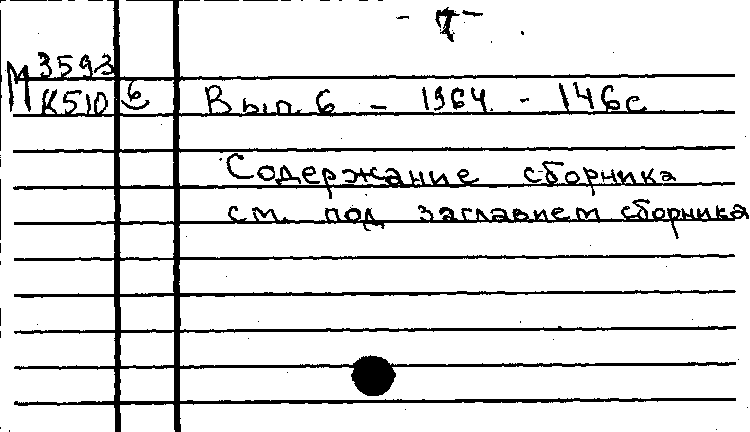 - 7 -
М 3593
К510 6 Вып. 6 - 1964. - 146с
Содержание сборника
см. под заглавием сборника